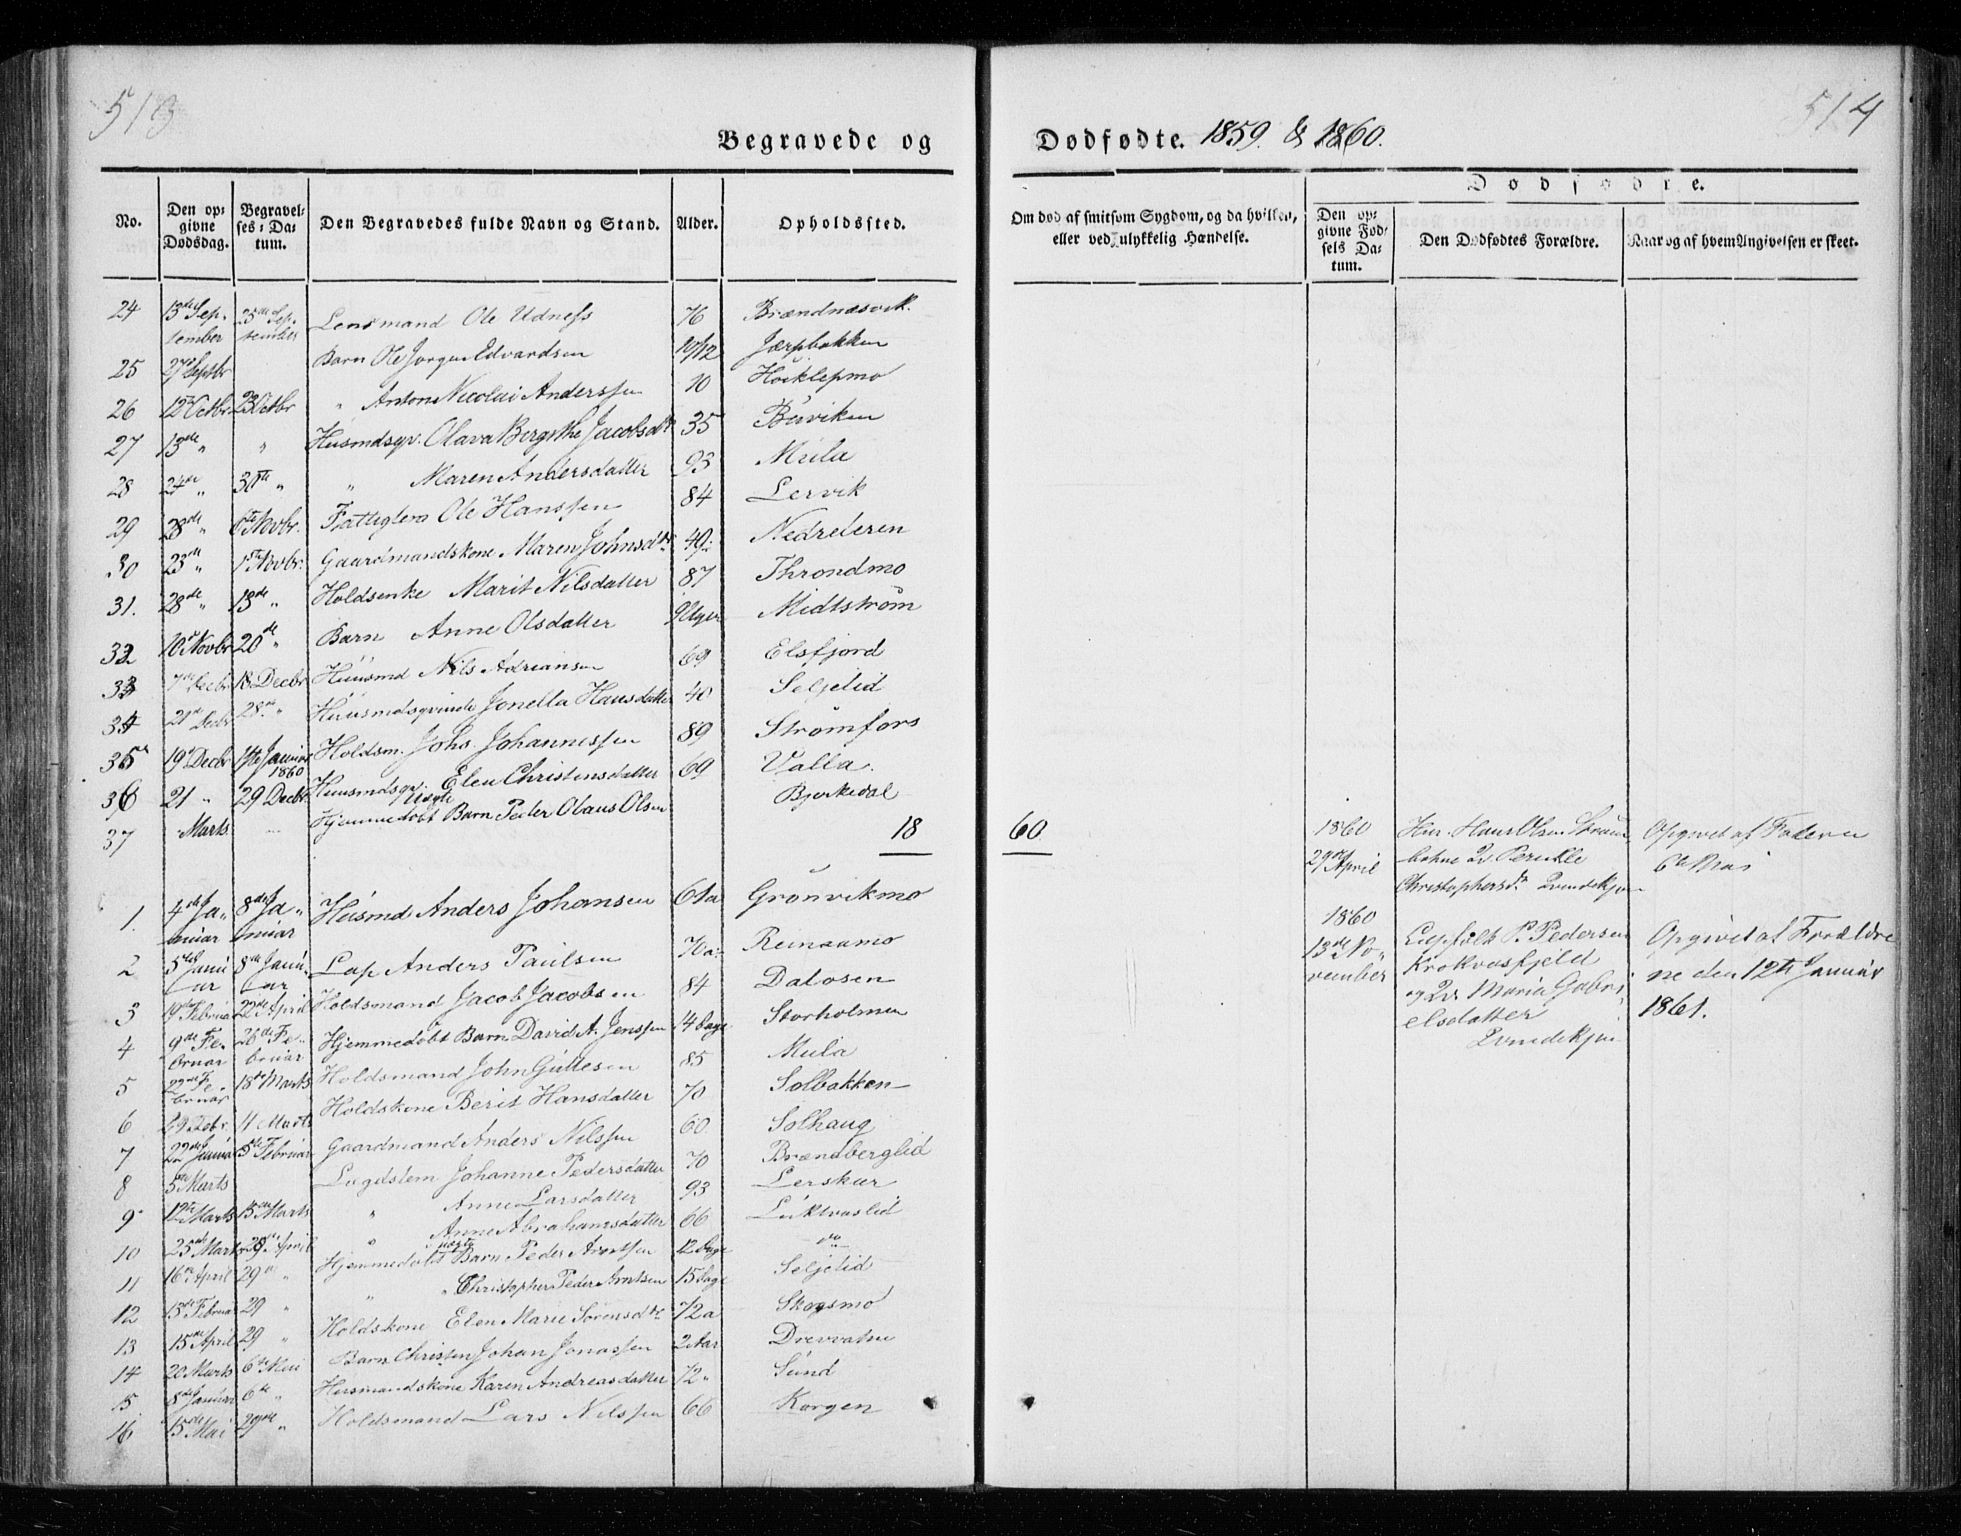 513
514
Begravede og
Dødfødte. 1859. & 1860.
Dødfødte.
No. Den opgivne Dødsdag. Begravelses-Datum. Den Begravedes fulde Navn og Stand. Alder. Opholdssted.
Om død af smitsom Sygdom, og da hvilken, eller ved ulykkelig Hændelse. Den opgivne Fødsels Datum. Den Dødfødtes Forældre. Naar og af hvem Angivelsen er skeet.
24 13de September 25de September Lensmand Ole Udness 76 Brændnæsvik.
25 27 Septbr Barn Ole Jørgen Edvardsen 10/12 Jærpbakken
26 12 Octbr 23 Octbr " Anton Nicolai Anderssen 10
27 13de " " Husmdsqv. Olava Jacobsdtr 35
28 24de " 30te " " Maren Andersdatter 93 Mula
29 28de " 6te Novbr. Fattiglem Ole Hanssen 84 Lervik
30 23de " 1ste Novbr. Gaardmandskone Maren Johnsdtr 49 Nedreleren
31. 28de " 13de " Holdsenke Marit Nilsdatter 87 Throndmo
32 10de Novbr 20de " Barn Anne Olsdatter Uger Midtstrøm
33 7de Decbr 18 Decbr Huusmd Nils Adriansen 69 Elsfjord
34 21de Decbr 28de " Huusmdsqvinde Jonella Hansdatter 40 Seljelid
35 19de Decbr 1ste Januar 1860 Holdsm. Johs. Johannessen 89 Strømfors
36 21 " 29 Decbr. Huusmdsqv. Elen Christensdatter 69 Valla.
37 Marts Hjemmedøbt uægte Barn Peder Olaus Olsen Bjerkedal
18 60
1. 4de Januar 8de Januar Husmd Anders Johansen 61 a Grønvikmo
2 5te Januar 8de Januar Lap Anders Paulsen 70 a Reinaamo
3 19de Februar 22de April Holdsmand Jacob Jacobsen 84 Dalosen
4 9de Februar 26de Februar Hjemmedøbt Barn David A. Jenssen 14 Dage Storholmen
5 22de Februar 18de Marts Holdsmand John Guttesen 85 Mula
6 29 Febr. 11 Marts Holdskone Berit Hansdatter 70 Solbakken
7 22de Januar 5te Februar Gaardmand Anders Nilssen 60 Solhaug
8 5te Marts Lagdslem Johanne Pedersdatter 70 Brændberglid
9 12te Marts 13de Marts " Anne Larsdatter 93 Lerskar
10 25de Marts 28de April " Anne Abrahamsdatter 66 Luktvaslid
11 16de April 29de " Hjemmedøbt uægte Barn Peder Arntsen 12 Dage do
12 13de Februar 29 " " " Christopher Peder Arntsen 15 Dage Seljelid
13 15de April 29 " Holdskone Elen Marie Sørensdtr 72 a Skogsmo
14 20 Marts 6te Mai Barn Christen Johan Jonassen 2 Aar Drevvatne
15 8de Januar 6te " Husmandskone Karen Andreasdatter 72 " Sund
16 15de Mai 29de " Holdsmand Lars Nilssen 66 Korgen
1860 29de April Hans Olsen Christophersdtr Qvindekjøn Opgivet af Faderen 6te Mai
1860 13de November Lapfolk P. Pedersen Krokvasfjeld og Qv. Maria Gabrielsdatter Qvindekjøn Opgivet af Forældrene den 12te Januar 1861.